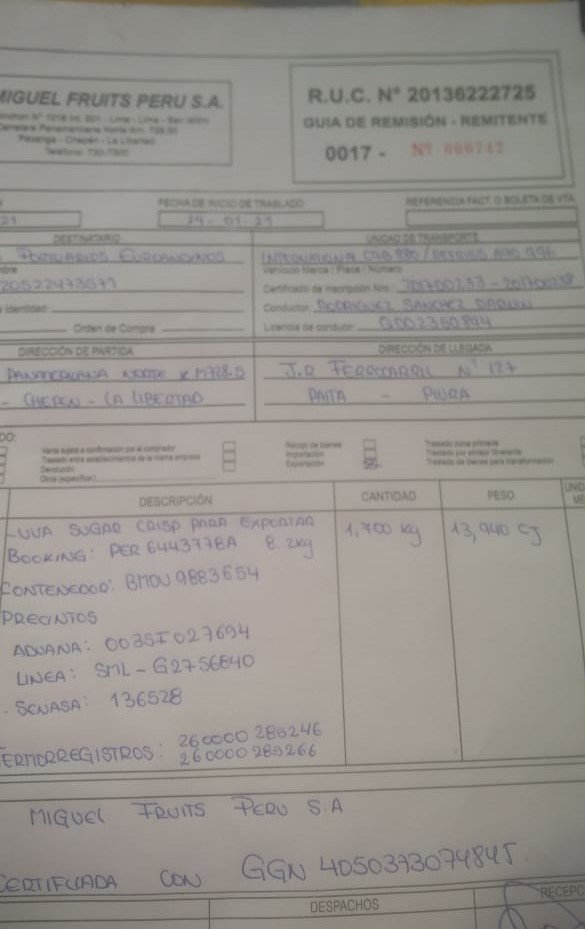 MIGUEL FRUITS PERU S.A.
R.U.C. N° 20136222725
GUIA DE REMISIÓN - REMITENTE
0017 - Nº 000742
FECHA DE INICIO DE TRASLADO
REFERENCIA FACT. O BOLETA DE VTA
24-01-21
DESTINATARIO
UNIDAD DE TRANSPORTE
PORTUARIOS EUROANDINOS
Vehículo Marca / Placa / Número
20522473571
Certificado de Inscripción Nro.
Conductor: RODRIGUEZ SANCHEZ
Orden de Compra
Licencia de conducir: Q002350894
DIRECCIÓN DE PARTIDA
DIRECCIÓN DE LLEGADA
PANAMERICANA NORTE KM728.5
J.R FERROCARRIL N° 127
- CHEPEN - LA LIBERTAD
PAITA - PIURA
Venta sujeta a confirmación por el comprador
Recojo de bienes
Traslado zona primaria
Traslado entre establecimientos de la misma empresa
Importación
Traslado por emisor itinerante
Devolución
Exportación
Traslado de bienes para transformación
Otros (especificar)
DESCRIPCIÓN
CANTIDAD
PESO
-UVA SUGAR CRISP PARA EXPORTAR
1,700 kg
13,940 CJ
BOOKING: PER 6443778A 8.2kg
CONTENEDOR: BMOU 9883654
PRECINTOS
ADUANA: 0035I027694
LINEA: SML-G2756840
- SENASA: 136528
TERMORREGISTROS: 260000285246
260000285266
MIGUEL FRUITS PERU S.A
CERTIFICADA CON GGN 4050373074845.
DESPACHOS
RECEPC